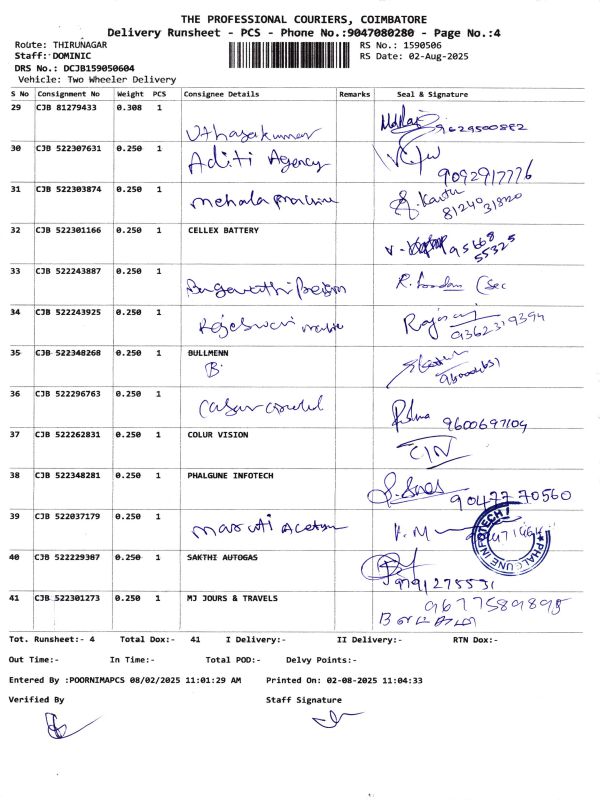 THE PROFESSIONAL COURIERS, COIMBATORE
Delivery Runsheet - PCS - Phone No.:9047080280 - Page No.:4
Route: THIRUNAGAR RS No.: 1590506
Staff: DOMINIC RS Date: 02-Aug-2025
DRS No.: DCJB159050604
Vehicle: Two Wheeler Delivery
S No Consignment No Weight PCS Consignee Details Remarks Seal & Signature
29 CJB 81279433 0.308 1 Uthayakumar 9629500882
30 CJB 522307631 0.250 1 Aditi Agency 9092917776
31 CJB 522303874 0.250 1 mehala 
32 CJB 522301166 0.250 1 CELLEX BATTERY 95668 55325
33 CJB 522243887 0.250 1
34 CJB 522243925 0.250 1 Rajeswari 9362319394
35 CJB 522348268 0.250 1 BULLMENN
B.
36 CJB 522296763 0.250 1 9600697104
37 CJB 522262831 0.250 1 COLUR VISION
38 CJB 522348281 0.250 1 PHALGUNE INFOTECH 90477 70560
39 CJB 522037179 0.250 1 Maruti
PHALGUNE INFOTECH
40 CJB 522229387 0.250 1 SAKTHI AUTOGAS 9791275531
41 CJB 522301273 0.250 1 MJ JOURS & TRAVELS 9677589895
Tot. Runsheet:- 4 Total Dox:- 41 I Delivery:- II Delivery:- RTN Dox:-
Out Time:- In Time:- Total POD:- Delvy Points:-
Entered By :POORNIMAPCS 08/02/2025 11:01:29 AM Printed On: 02-08-2025 11:04:33
Verified By Staff Signature